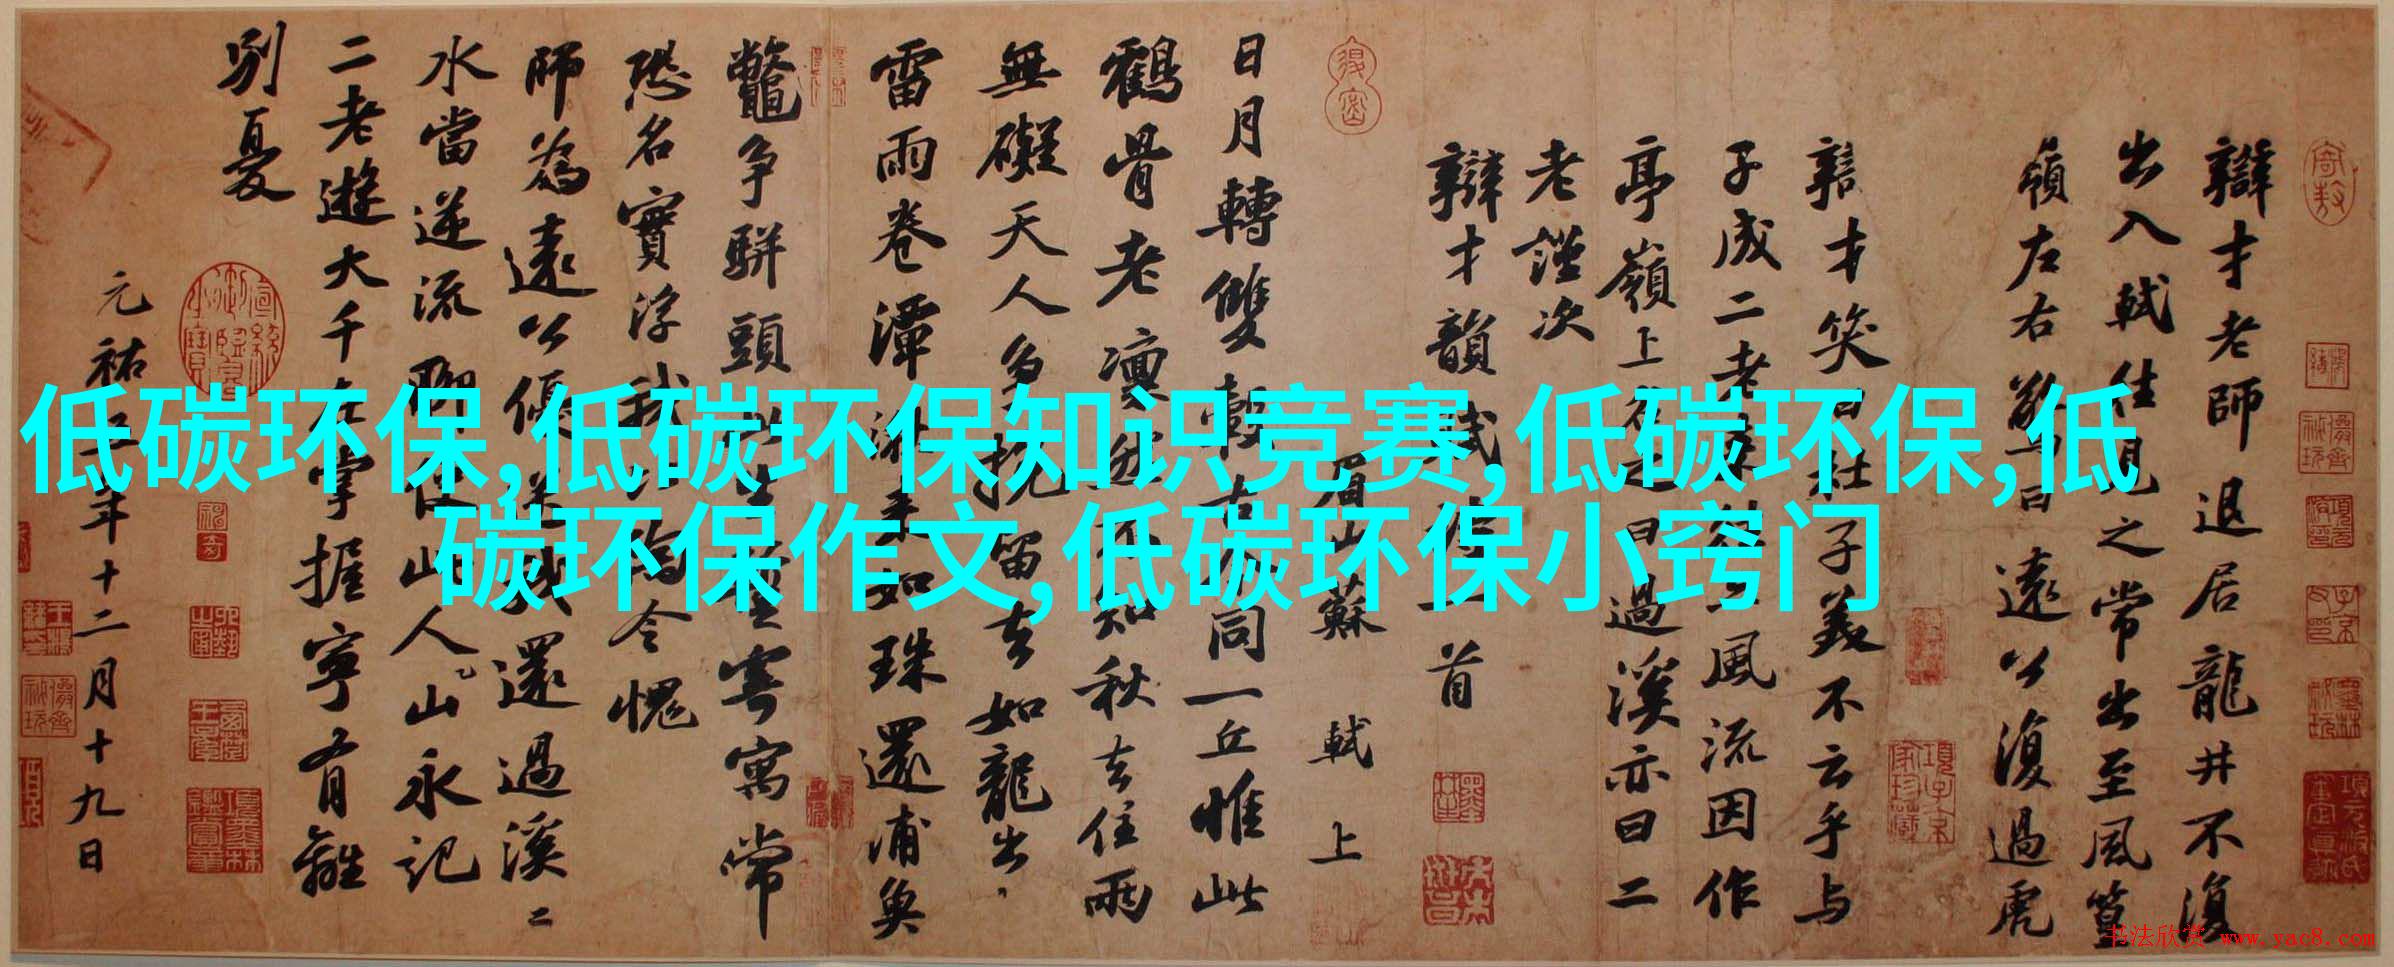 低碳环保,低碳环保知识竞赛,低碳环保,低
碳环保作文,低碳环保小窍门
辯才老師退居龍井不復
出入軾往見之常出至風篁
嶺左右驚曰遠公復過虎
辯才笑曰杜子美不云乎与
子成二老來往亦風流因作
亭嶺上名之曰過溪亦曰二
老謹次
辯才韻賦詩一首
眉山蘇軾上
日月轉雙轂古今同一丘惟此
鶴骨老凜然不知秋去住兩
無礙天人爭挽留去如龍出
雷雨卷潭湫來如珠還浦魚
鼈爭駢頭此生暫寄寓常
恐名實浮我比陶令愧
師為遠公優送我還過溪二
水當逆流聊使此人山永記
二老遊大千在掌握寧有離
別憂
元祐五年十二月十九日
书法欣赏 www.yac8.com